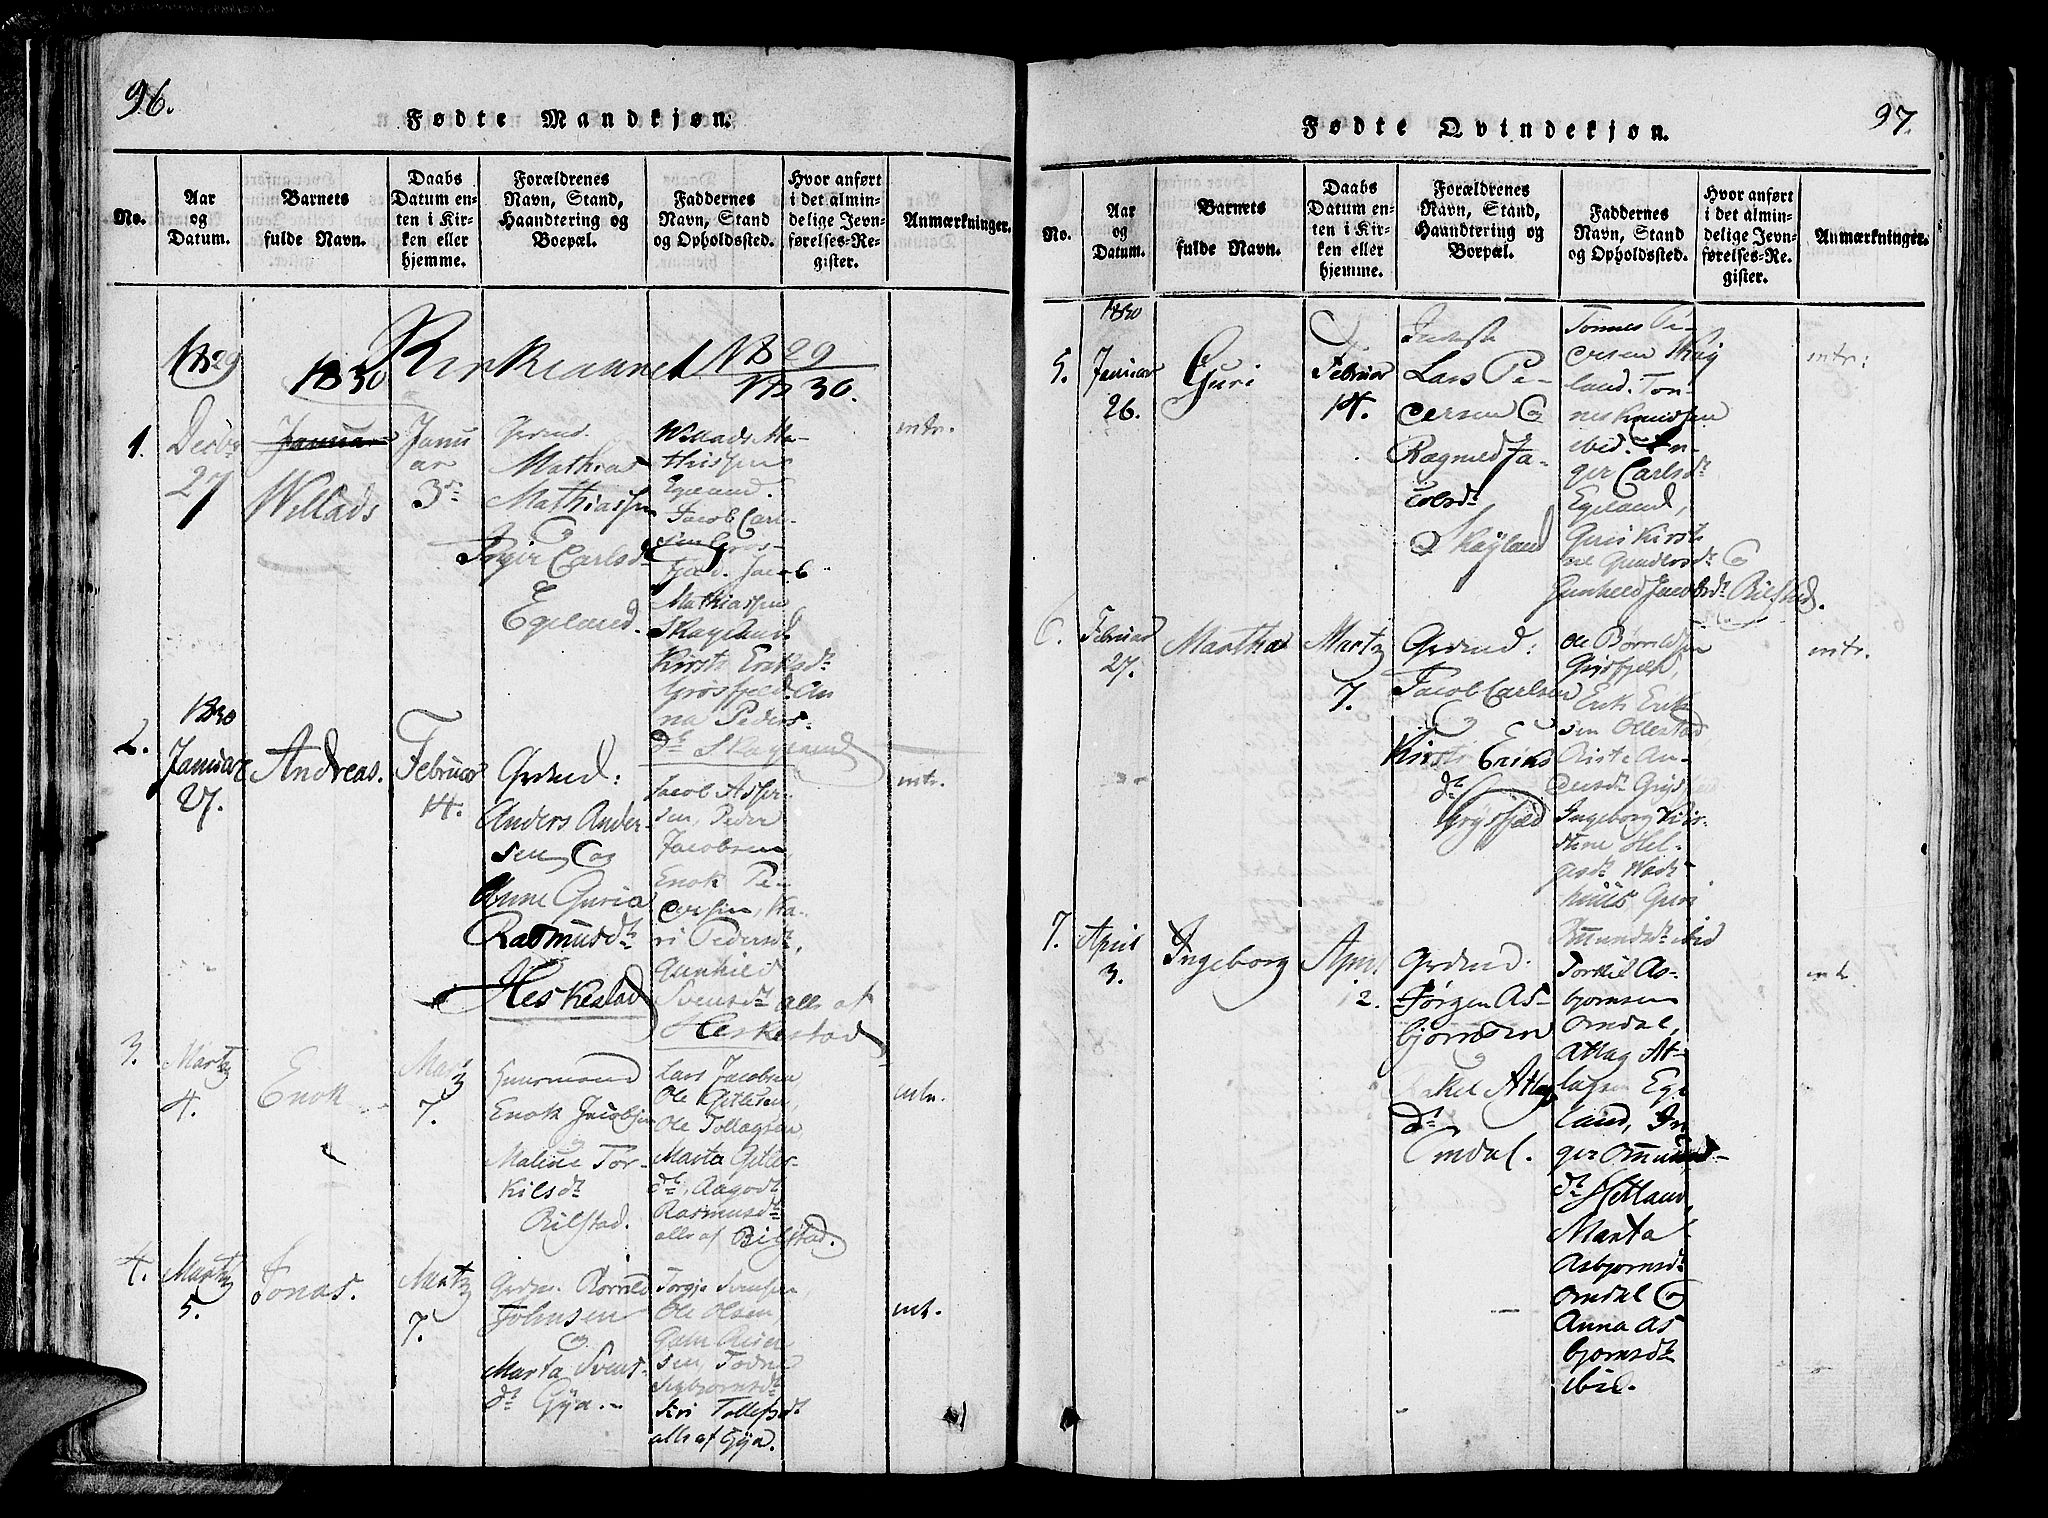 96.
Fødte Mandkjøn.
No.
Aar
og
Datum.
Barnets
fulde Navn.
Daabs
Datum en-
ten i Kir-
ken eller
hjemme.
Forældrenes
Navn, Stand,
Haandtering og
Boepæl.
Faddernes
Navn, Stand
og Opholdssted.
Hvor anført
i det almin-
delige Jevn-
førelses-Re-
gister.
Anmærkninger.
1829
1830
Kirkeaaret 1829
1830.
1.
Decbr
27
Januar
Willads
Janu
ar
3die
Grdmd.
Mathias
Mathiassen
og
Inger Carlsdt
Egeland.
Willads Ma-
thissen
Egeland.
Jacob Carl-
sen Grøs-
fjeld. Jacob
Mathiassen
Skageland
Kirsti Eriksdt
Grøsfjeld An
na Peders-
dt Skageland
intr.
1830
2.
Januar
27.
Andreas.
Februar
14.
Grdmd:
Anders Ander-
sen og
Anne Guria
Rasmusdt
Heskestad
Jacob Asser-
sen, Peder
Jacobsen
Enok Pe-
dersen, Ka-
ri Pedersdt,
Gunhild
Svensdt alle af
Heskestad
intr.
3.
Martz
4.
Enok
Martz
7.
Huusmand
Enok Jacobsen
og
Malene Tor-
kilsdt
Bilstad.
Lars Jacobsen
Ole Gitlesen,
Ole Tollagsen,
Marta Gitles-
dt, Aagodt
Rasmusdt
alle af Bilstad.
intr.
4.
Martz
5.
Jonas.
Martz
7.
Grdm. Børrild
Johnsen
og
Marta Svens-
dt Gya.
Torgje Svensen,
Ole Olsen,
sen, Todne
Sigbjørnsdt
Siri Tollefsdt
alle af Gya.
intr.
97.
Fødte Qvindekjøn.
No.
Aar
og
Datum.
Barnets
fulde Navn.
Daabs
Datum en-
ten i Kir-
ken eller
hjemme.
Forældrenes
Navn, Stand,
Haandtering og
Boepæl.
Faddernes
Navn, Stand
og Opholdssted.
Hvor anført
i det almin-
delige Jevn-
førelses-Re-
gister.
Anmærkninger.
1830
5.
Januar
26.
Guri
Februar
14.
Inderst
Lars Pe-
dersen og
Ragnild Ja-
cobsdt
Skayland
Tonnes Pe-
dersen Skay
land. Ton-
nes Knudsen
ibid. In-
ger Carlsdt
Egeland,
Guri Kirsti-
ne Gundersdt og
Gunheld Jacobsdt Bilsted.
intr:
6.
Februar
27.
Martha
Martz
7.
Grdmd:
Jacob Carlsen
og
Kirsti Eriks
dt
Grøsfjeld
Ole Børrildsen
Grøsfjeld,
Erik Erik
sen Ollestad
Siste An-
dersdt Grøs
Ingeborg Kir-
stine Hel-
gesdt Wad-
huus Guri
Omundsdt ibid
intr.
7.
April
3.
Ingeborg
April
12.
Grdmd.
Jørgen As-
bjørnsen
Rakel Atlag
dt
Omdal.
Torkil As-
bjørnsen
Omdal,
Atlag At-
lagsen Ege
land, In
ger Omund-
dt Hetland,
Marta
Asbjørnsdt
Omdal og
Anna As
bjørnsdt
ibid.
intr.